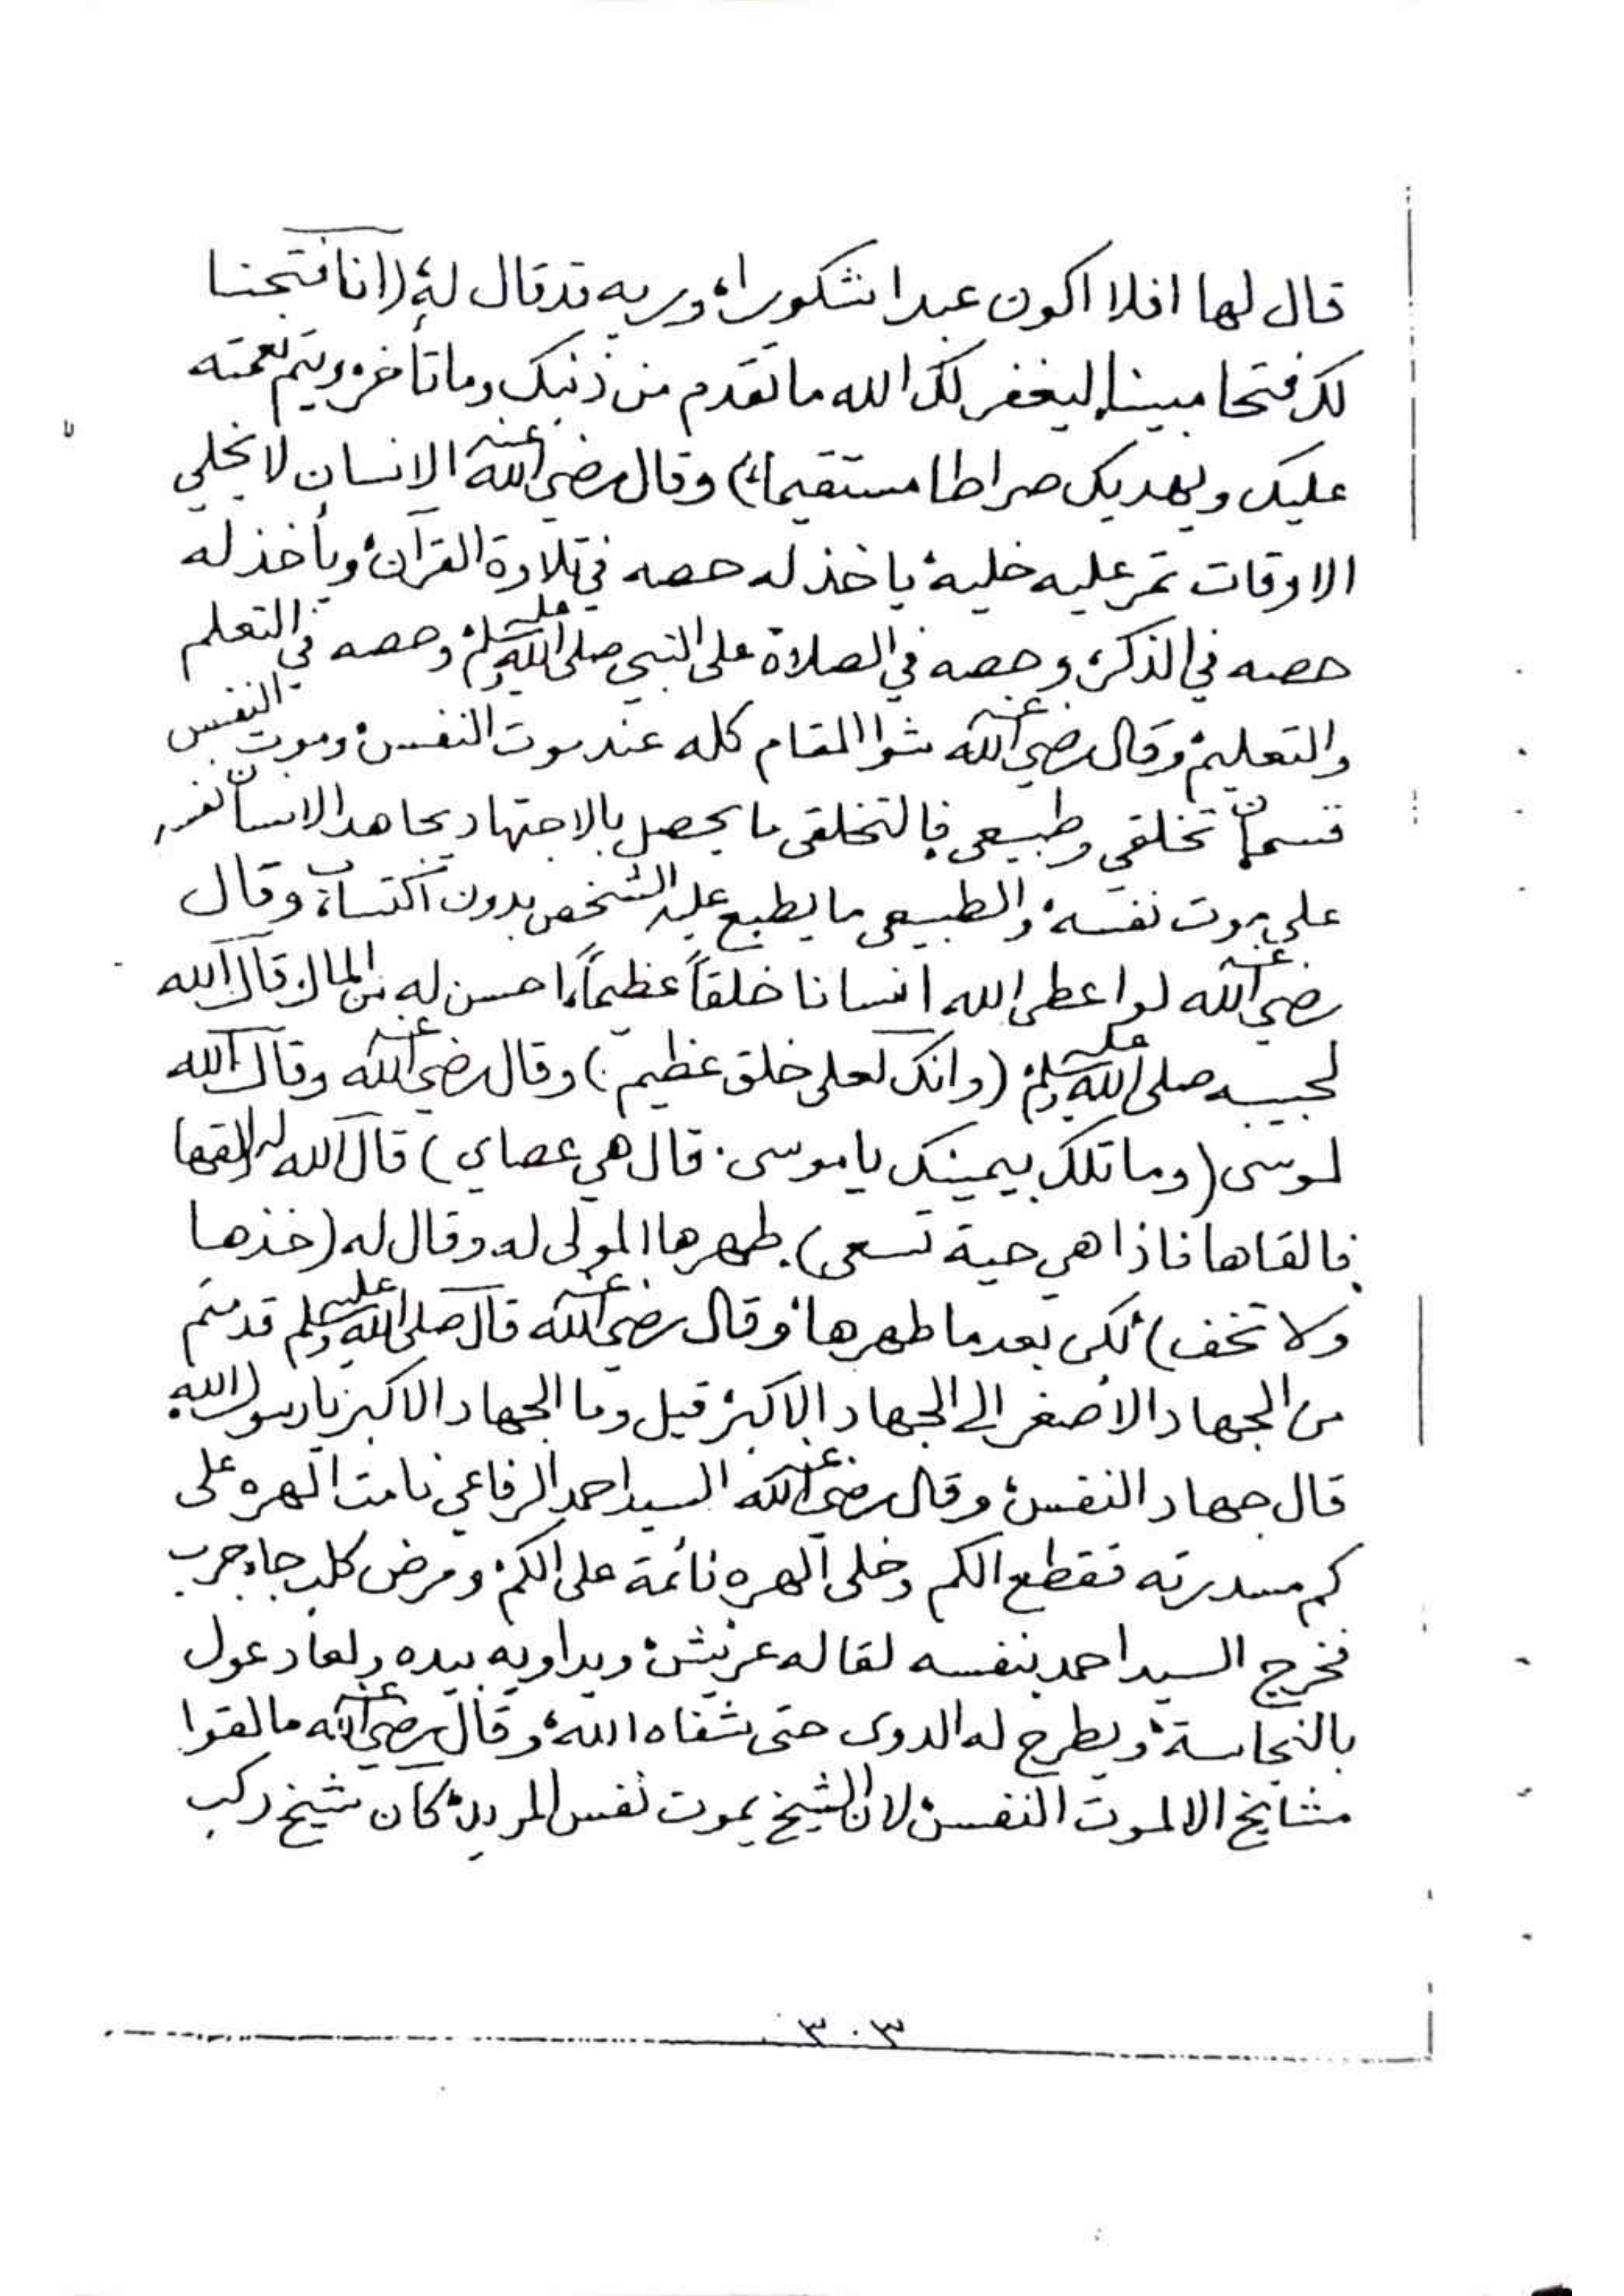 قال لها افلا اكون عبدا شكورا، وربه قد قال له، (انا فتحنا
لك فتحا مبينا ليغفر لك الله ما تقدم من ذنبك وما تأخر ويتم نعمته
عليك ويهديك صراطا مستقيما،) وقال رضي الله عنه الانسان لا يخلي
الاوقات تمر عليه خلية، ياخذ له حصه في تلاوة القرآن، ويأخذ له
حصه في الذكر، وحصه في الصلاة على النبي صلى الله عليه وسلم، وحصه في التعلم
والتعليم، وقال رضي الله عنه شوا المقام كله عند موت النفس، وموت النفس
قسمان تخلقي وطبيعي فالتخلقي ما يحصل بالاجتهاد يجاهد الانسان
على موت نفسه، والطبيعي ما يطبع عليه الشخص بدون اكتساب، وقال
رضي الله عنه لو اعطى الله انسانا خلقاً عظيماً، احسن له من المال، قال الله
لحبيبه صلى الله عليه وسلم، (وانك لعلى خلق عظيم) وقال رضي الله عنه وقال الله
لموسى (وما تلك بيمينك يا موسى. قال هي عصاي) قال الله له (القها
فالقاها فاذا هي حية تسعى) طهرها المولى له وقال له (خذها
ولا تخف) لكن بعد ما طهرها، وقال رضي الله عنه قال صلى الله عليه وسلم قدمتم
من الجهاد الاصغر الى الجهاد الاكبر، قيل وما الجهاد الاكبر يا رسول الله
قال جهاد النفس، وقال رضي الله عنه السيد احمد الرفاعي نامت الهره على
كم مدرته فقطع الكم وخلى الهره نائمة على الكم، ومرض كلب جاه جرب
فخرج السيد احمد بنفسه لقا له عريش، ويداويه بيده ولعاد عول
بالنجاسة، ويطرح له الدوى حتى شفاه الله، وقال رضي الله عنه ما لقوا
مشايخ الا لموت النفس، لان الشيخ يموت نفس المريد، كان شيخ ركب
٣٠٣